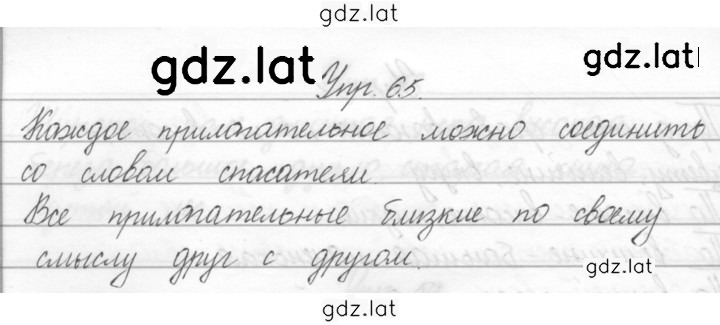 gdz.lat
gdz.lat
gdz.lat
Упр. 65.
Каждое прилагательное можно соединить
со словом спасатели.
Все прилагательные близкие по своему
смыслу друг с другом.
gdz.lat
gdz.lat